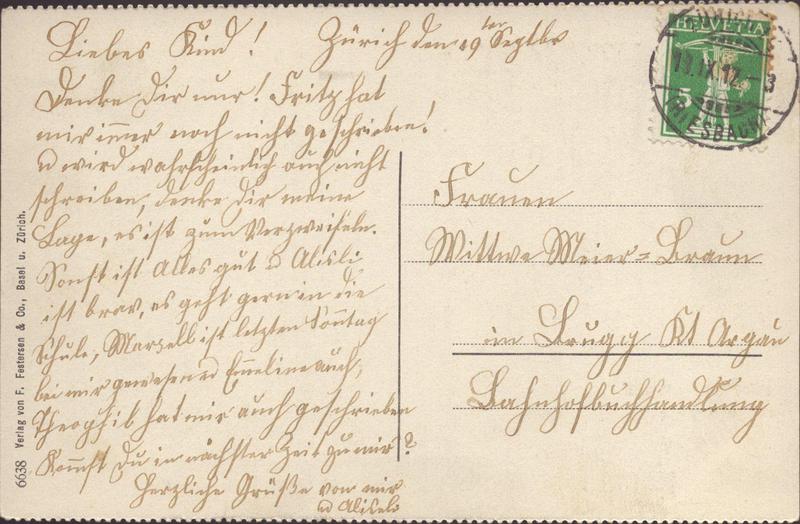 Liebes Kind! Zürich den 19ten Septbr
Denke Dir nur! Fritz hat
mir immer noch nicht geschrieben!
u wird wahrscheinlich auch nicht
schreiben, denke Dir meine
Lage, es ist zum Verzweifeln.
Sonst ist Alles gut u Alisli
ist brav, es geht gern in die
Schule, Marzell ist letzten Sonntag
bei mir gewesen u Emeline auch,
Theophil hat mir auch geschrieben
Kommst Du in nächster Zeit zu mir?
Herzliche Grüße von mir
u Alisli
Frauen
Wittwe Meier=Braun
in Brugg Kt Argau
Bahnhofbuchhandlung
HELVETIA
5
IX.12.-3
(RIESBACH)
6638 Verlag von F. Festersen & Co., Basel u. Zürich.